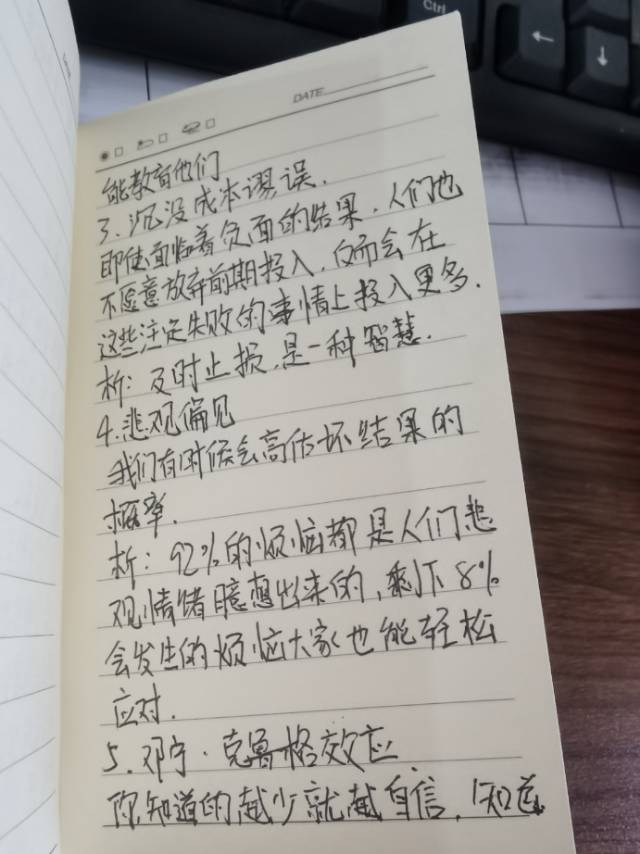 Ctrl
←
↓
DATE
能教育他们
3、沉没成本谬误.
即使面临着负面的结果,人们也
不愿意放弃前期投入,反而会在
这些注定失败的事情上投入更多.
析:及时止损,是一种智慧.
4.悲观偏见
我们有时候会高估坏结果的
概率.
析:92%的烦恼都是人们悲
观情绪臆想出来的,剩下8%
会发生的烦恼大家也能轻松
应对.
5、邓宁·克鲁格效应
你知道的越少就越自信,知道